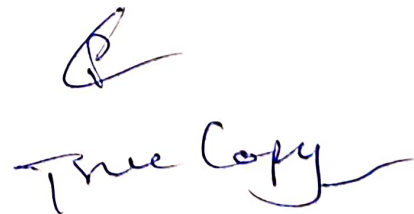 True Copy